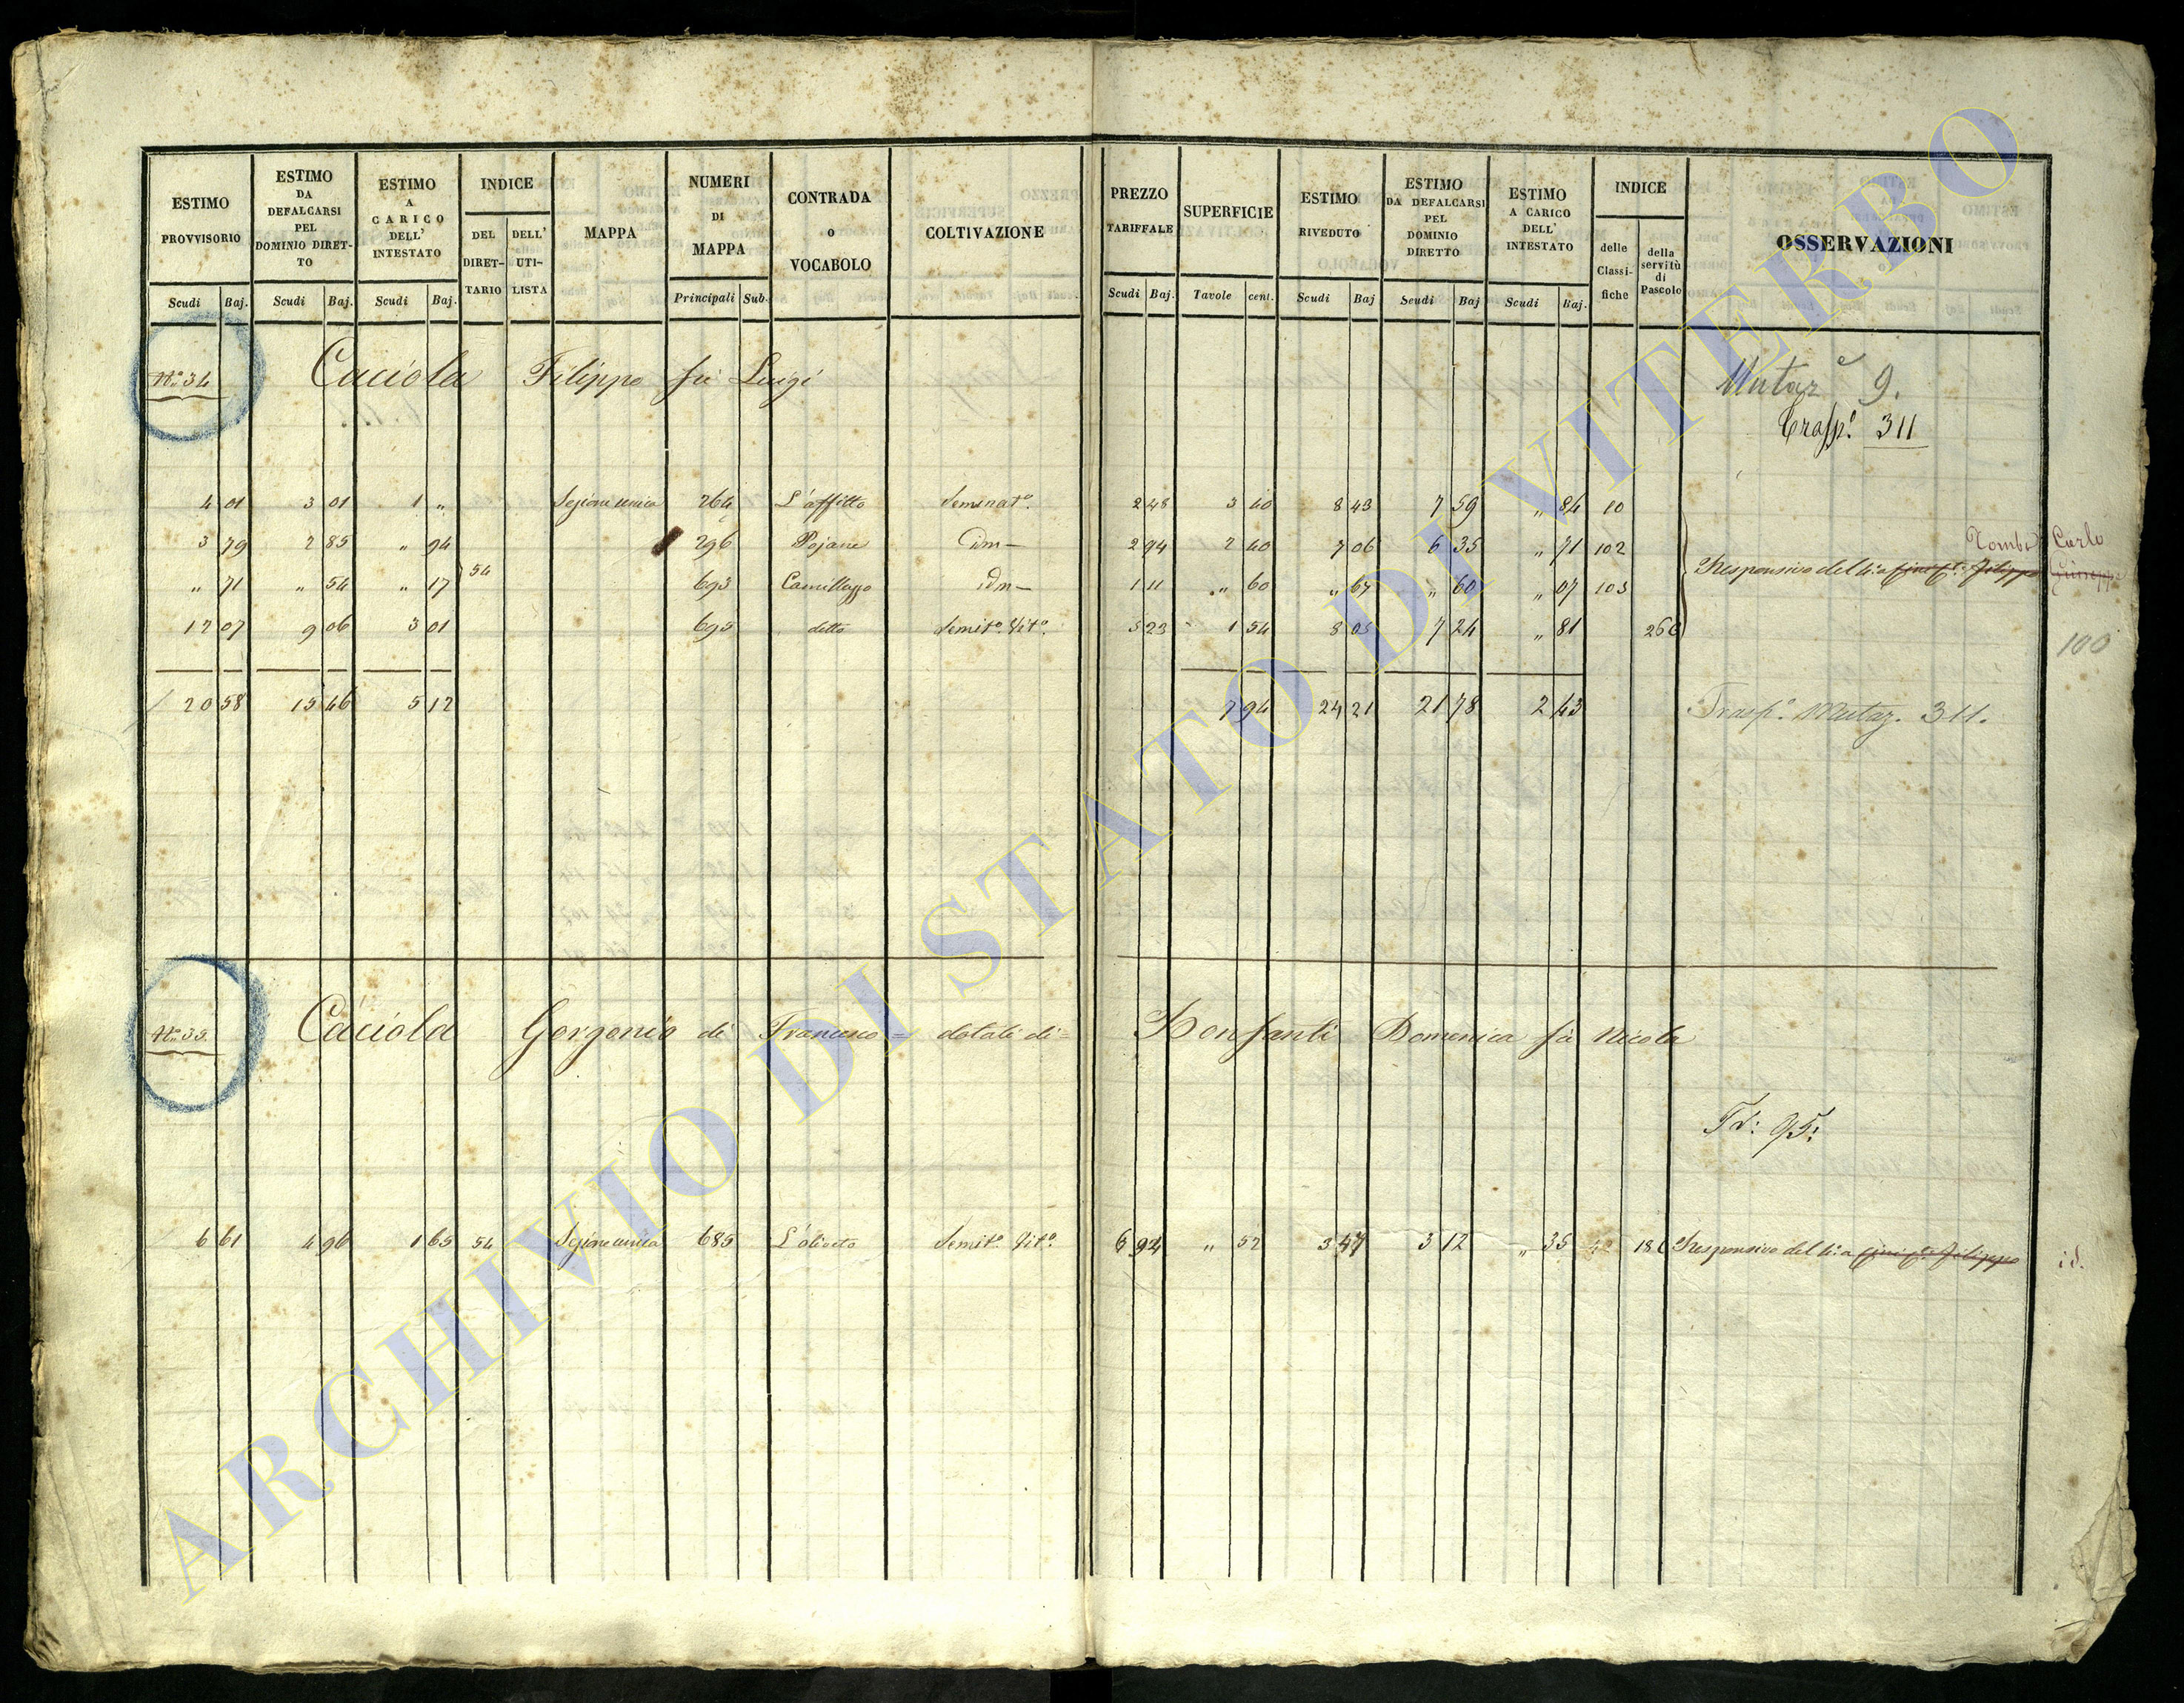 ESTIMO PROVVISORIO
ESTIMO DA DEFALCARSI PEL DOMINIO DIRET-TO
ESTIMO A CARICO DELL' INTESTATO
INDICE
DEL DIRET-TARIO
DELL' UTI-LISTA
MAPPA
NUMERI DI MAPPA
CONTRADA o VOCABOLO
COLTIVAZIONE
PREZZO TARIFFALE
SUPERFICIE
ESTIMO RIVEDUTO
ESTIMO DA DEFALCARSI PEL DOMINIO DIRETTO
ESTIMO A CARICO DELL' INTESTATO
INDICE
delle Classi-fiche
della servitù di Pascolo
OSSERVAZIONI
Scudi Baj. Scudi Baj. Scudi Baj. Principali Sub. Scudi Baj. Tavole cent. Scudi Baj Scudi Baj Scudi Baj.
N.º 34 Caciola Filippo fu Luigi Mutaz.e 9.
Trasp.º 311
4 01 3 01 1 " Sezione unica 264 L'affitto Seminat.º 2 48 3 40 8 43 7 59 " 84 10
3 79 2 85 " 94 296 Pojane idm— 2 94 2 40 7 06 6 35 " 71 102 Carlo
54 Responsivo del 4.º a
" 71 " 54 " 17 693 Camillozzo idm— 1 11 " 60 " 67 " 60 " 07 103
12 07 9 06 3 01 695 detto Semit.º Vit.º 5 23 1 54 8 05 7 24 " 81 266
100
20 58 15 46 5 12 7 94 24 21 21 78 2 43 Trasp.º Mutaz. 311.
N.º 35 Caciola Gorgonio di Francesco = dotali di = Bonfanti Domenica fu Nicola
Td: 95:
6 61 4 96 1 65 54 Sezione unica 685 L'oliveto Semit.º Vit.º 6 92 " 52 3 47 3 12 " 35 186 Responsivo del 4.º a Filippo id.
ARCHIVIO DI STATO DI VITERBO